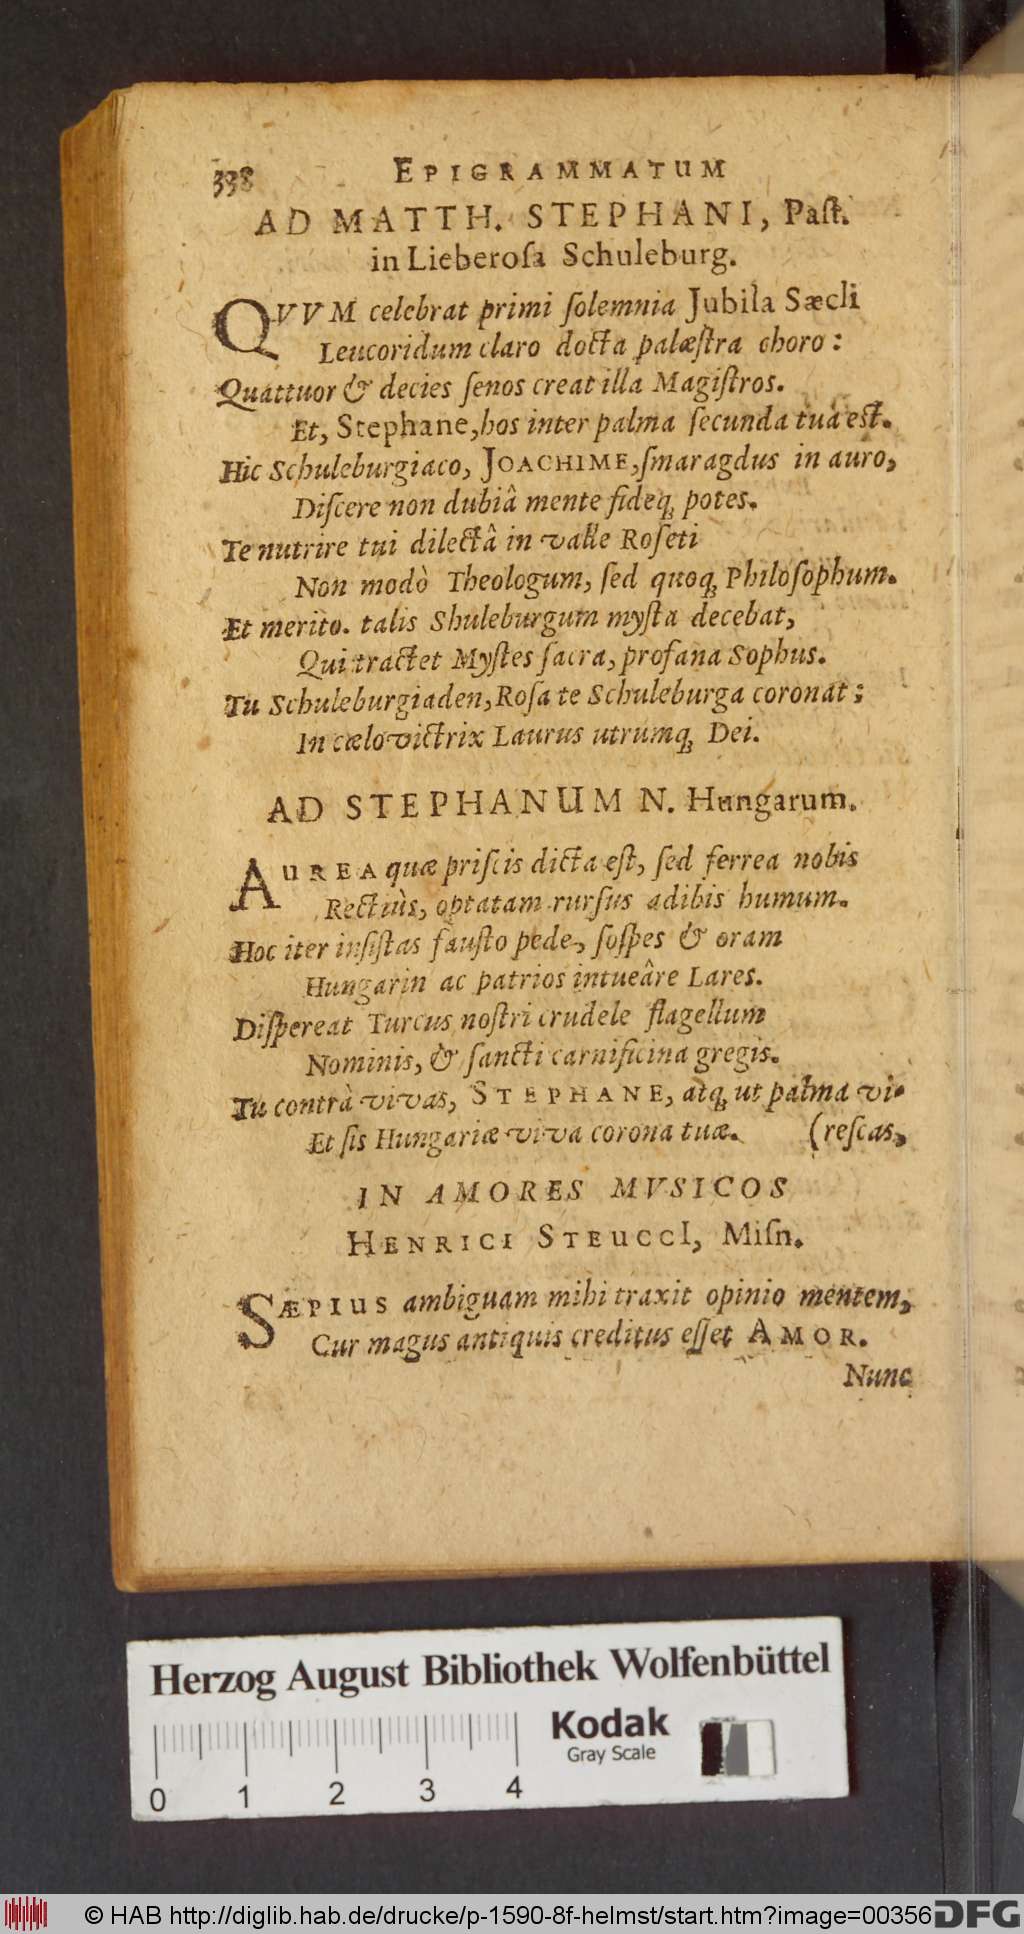 338 EPIGRAMMATUM
AD MATTH. STEPHANI, Paſt.
in Lieberoſa Schuleburg.
QVVM celebrat primi ſolemnia Jubila Sæcli
Leucoridum claro docta palæſtra choro:
Quattuor & decies ſenos creat illa Magiſtros.
Et, Stephane, hos inter palma ſecunda tua eſt.
Hic Schuleburgiaco, JOACHIME, ſmaragdus in auro,
Diſcere non dubiâ mente fideq́; potes.
Te nutrire tui dilectâ in valle Roſeti
Non modò Theologum, ſed quoq́; Philoſophum.
Et meritò. talis Shuleburgum myſta decebat,
Qui tractet Myſtes ſacra, profana Sophus.
Tu Schuleburgiaden, Roſa te Schuleburga coronat:
In cælo victrix Laurus utrumq́; Dei.
AD STEPHANUM N. Hungarum.
AUREA quæ priſcis dicta eſt, ſed ferrea nobis
Rectiùs, optatam rurſus adibis humum.
Hoc iter inſiſtas fauſto pede, ſoſpes & oram
Hungarin ac patrios intueâre Lares.
Diſpereat Turcus noſtri crudele flagellum
Nominis, & ſancti carnificina gregis.
Tu contrà vivas, STEPHANE, atq́; ut palma vi-
Et ſis Hungariæ viva corona tuæ. (reſcas,
IN AMORES MVSICOS
HENRICI STEUCCI, Miſn.
SÆPIUS ambiguam mihi traxit opinio mentem,
Cur magus antiquis creditus eſſet AMOR.
Nunc
Herzog August Bibliothek Wolfenbüttel
Kodak
Gray Scale
0 1 2 3 4
© HAB http://diglib.hab.de/drucke/p-1590-8f-helmst/start.htm?image=00356
DFG